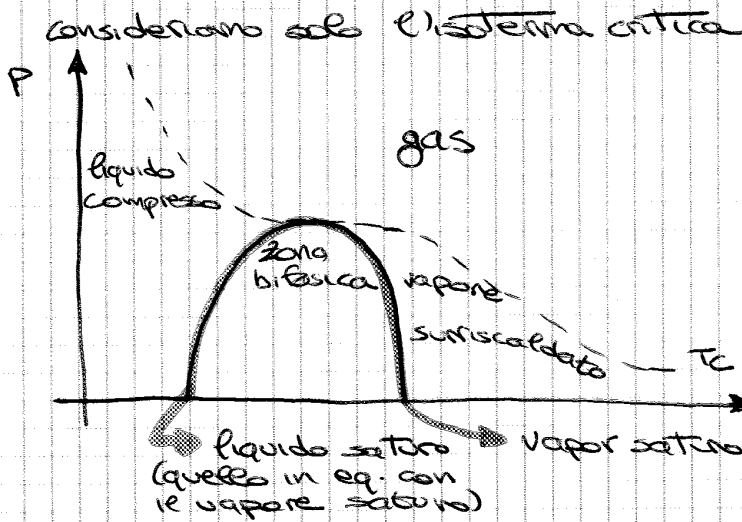 consideriamo solo l'isoterma critica
P
gas
liquido
compresso
zona
bifasica
vapore
surriscaldato
Tc
liquido saturo
(quello in eq. con
il vapore saturo)
vapor saturo